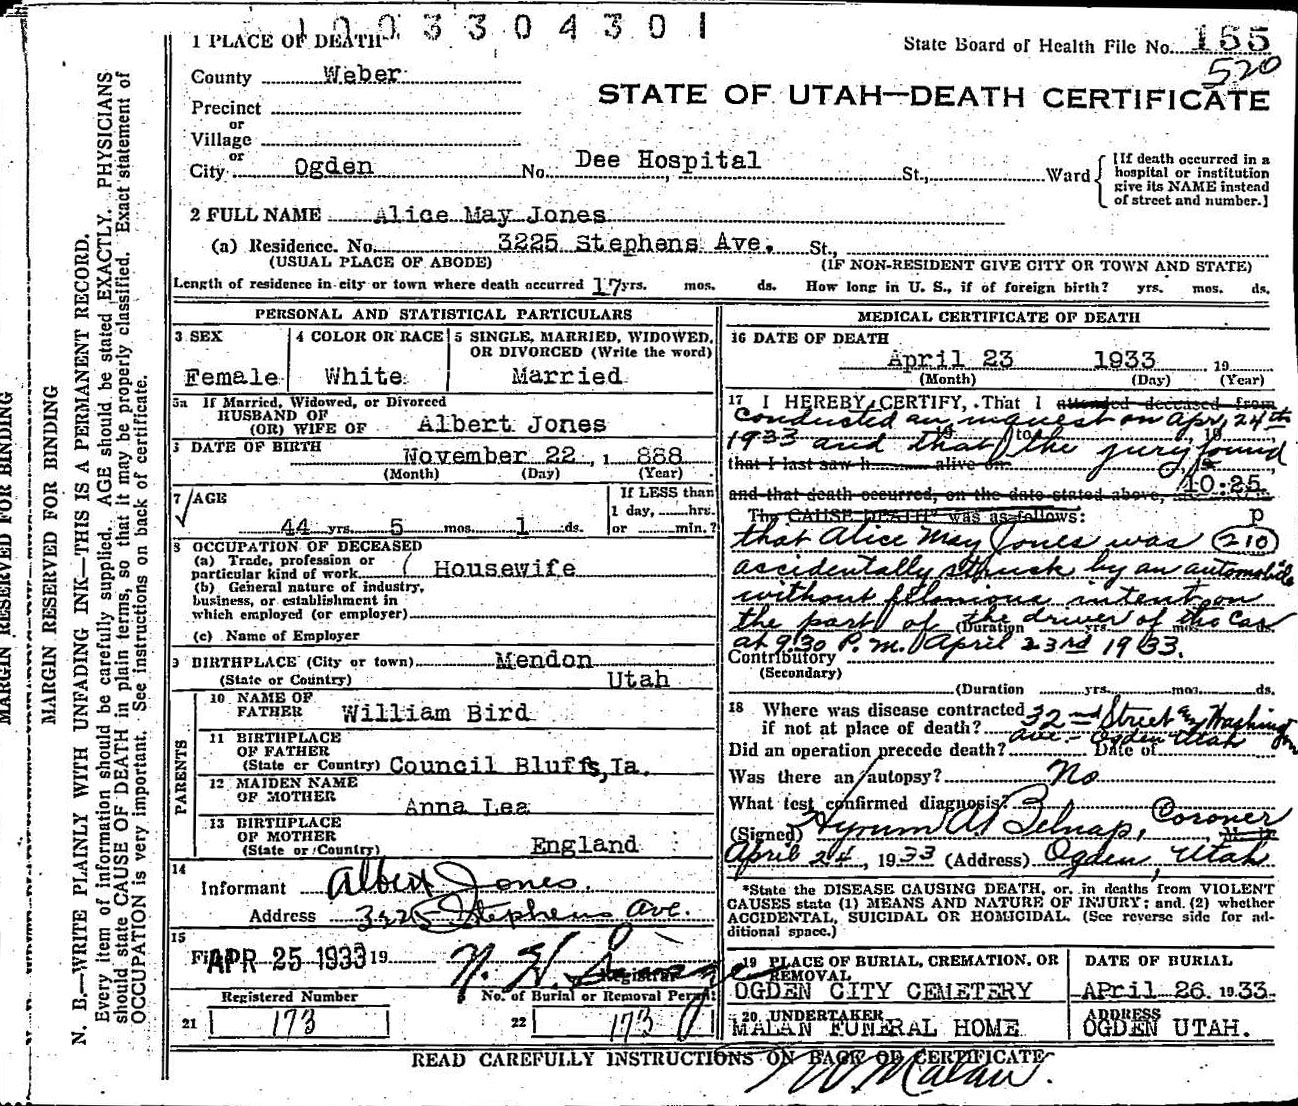 1003304301
1 PLACE OF DEATH
State Board of Health File No. 155
520
County Weber
STATE OF UTAH—DEATH CERTIFICATE
Precinct
or
Village
or
City Ogden No. Dee Hospital St., Ward
[If death occurred in a
hospital or institution
give its NAME instead
of street and number.]
2 FULL NAME Alice May Jones
(a) Residence. No. 3225 Stephens Ave. St.,
(USUAL PLACE OF ABODE) (IF NON-RESIDENT GIVE CITY OR TOWN AND STATE)
Length of residence in city or town where death occurred 17 yrs. mos. ds. How long in U. S., if of foreign birth? yrs. mos. ds.
PERSONAL AND STATISTICAL PARTICULARS
3 SEX
Female
4 COLOR OR RACE
White
5 SINGLE, MARRIED, WIDOWED,
OR DIVORCED (Write the word)
Married
5a If Married, Widowed, or Divorced
HUSBAND OF
(OR) WIFE OF Albert Jones
DATE OF BIRTH November 22, 1 888
(Month) (Day) (Year)
7 AGE
44 yrs. 5 mos. 1 ds.
If LESS than
1 day, hrs.
or min.?
8 OCCUPATION OF DECEASED
(a) Trade, profession or
particular kind of work Housewife
(b) General nature of industry,
business, or establishment in
which employed (or employer)
(c) Name of Employer
9 BIRTHPLACE (City or town) Mendon
(State or Country) Utah
PARENTS
10 NAME OF
FATHER William Bird
11 BIRTHPLACE
OF FATHER
(State or Country) Council Bluffs, Ia.
12 MAIDEN NAME
OF MOTHER Anna Lea
13 BIRTHPLACE
OF MOTHER
(State or Country) England
14
Informant Albert Jones.
Address 3225 Stephens Ave.
15
APR 25 1933 19
Registrar
Registered Number
21 173
No. of Burial or Removal Permit
22 173
MEDICAL CERTIFICATE OF DEATH
16 DATE OF DEATH
April 23 1933 19
(Month) (Day) (Year)
17 I HEREBY CERTIFY, That I attended deceased from
conducted an inquest on Apr, 24th
19 to 19
1933 and that the jury found
that I last saw h alive on
and that death occurred, on the date stated above, 10:25
The CAUSE DEATH* was as follows: p
that Alice May Jones was 210
accidentally struck by an automobile
without felonious intent on
the part of the driver of the Car
(Duration yrs. mos. ds.
at 9:30 P.m. April 23rd 1933.
Contributory
(Secondary)
(Duration yrs. mos. ds.
18 Where was disease contracted
if not at place of death? 32nd Street & Washington
ave - Ogden Utah
Did an operation precede death? Date of
Was there an autopsy? No
What test confirmed diagnosis?
(Signed) Hyrum A. Belnap, Coroner
April 24, 1933 (Address) Ogden, Utah
*State the DISEASE CAUSING DEATH, or, in deaths from VIOLENT
CAUSES state (1) MEANS AND NATURE OF INJURY; and (2) whether
ACCIDENTAL, SUICIDAL OR HOMICIDAL. (See reverse side for ad-
ditional space.)
19 PLACE OF BURIAL, CREMATION, OR
REMOVAL
OGDEN CITY CEMETERY
DATE OF BURIAL
April 26 1933
20 UNDERTAKER
MALAN FUNERAL HOME
ADDRESS
OGDEN UTAH.
READ CAREFULLY INSTRUCTIONS ON BACK OF CERTIFICATE
Malan.
MARGIN RESERVED FOR BINDING
MARGIN RESERVED FOR BINDING
N. B.—WRITE PLAINLY WITH UNFADING INK—THIS IS A PERMANENT RECORD.
Every item of information should be carefully supplied. AGE should be stated EXACTLY. PHYSICIANS
should state CAUSE OF DEATH in plain terms, so that it may be properly classified. Exact statement of
OCCUPATION is very important. See instructions on back of certificate.